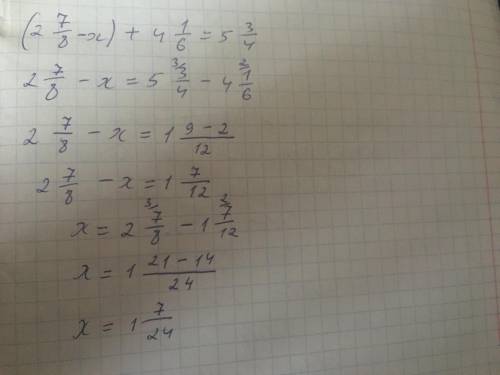 (2 7/8 - x) + 4 1/6 = 5 3/4
2 7/8 - x = 5 3/4 ³ - 4 1/6 ²
2 7/8 - x = 1 (9 - 2)/12
2 7/8 - x = 1 7/12
x = 2 7/8 ³ - 1 7/12 ²
x = 1 (21 - 14)/24
x = 1 7/24